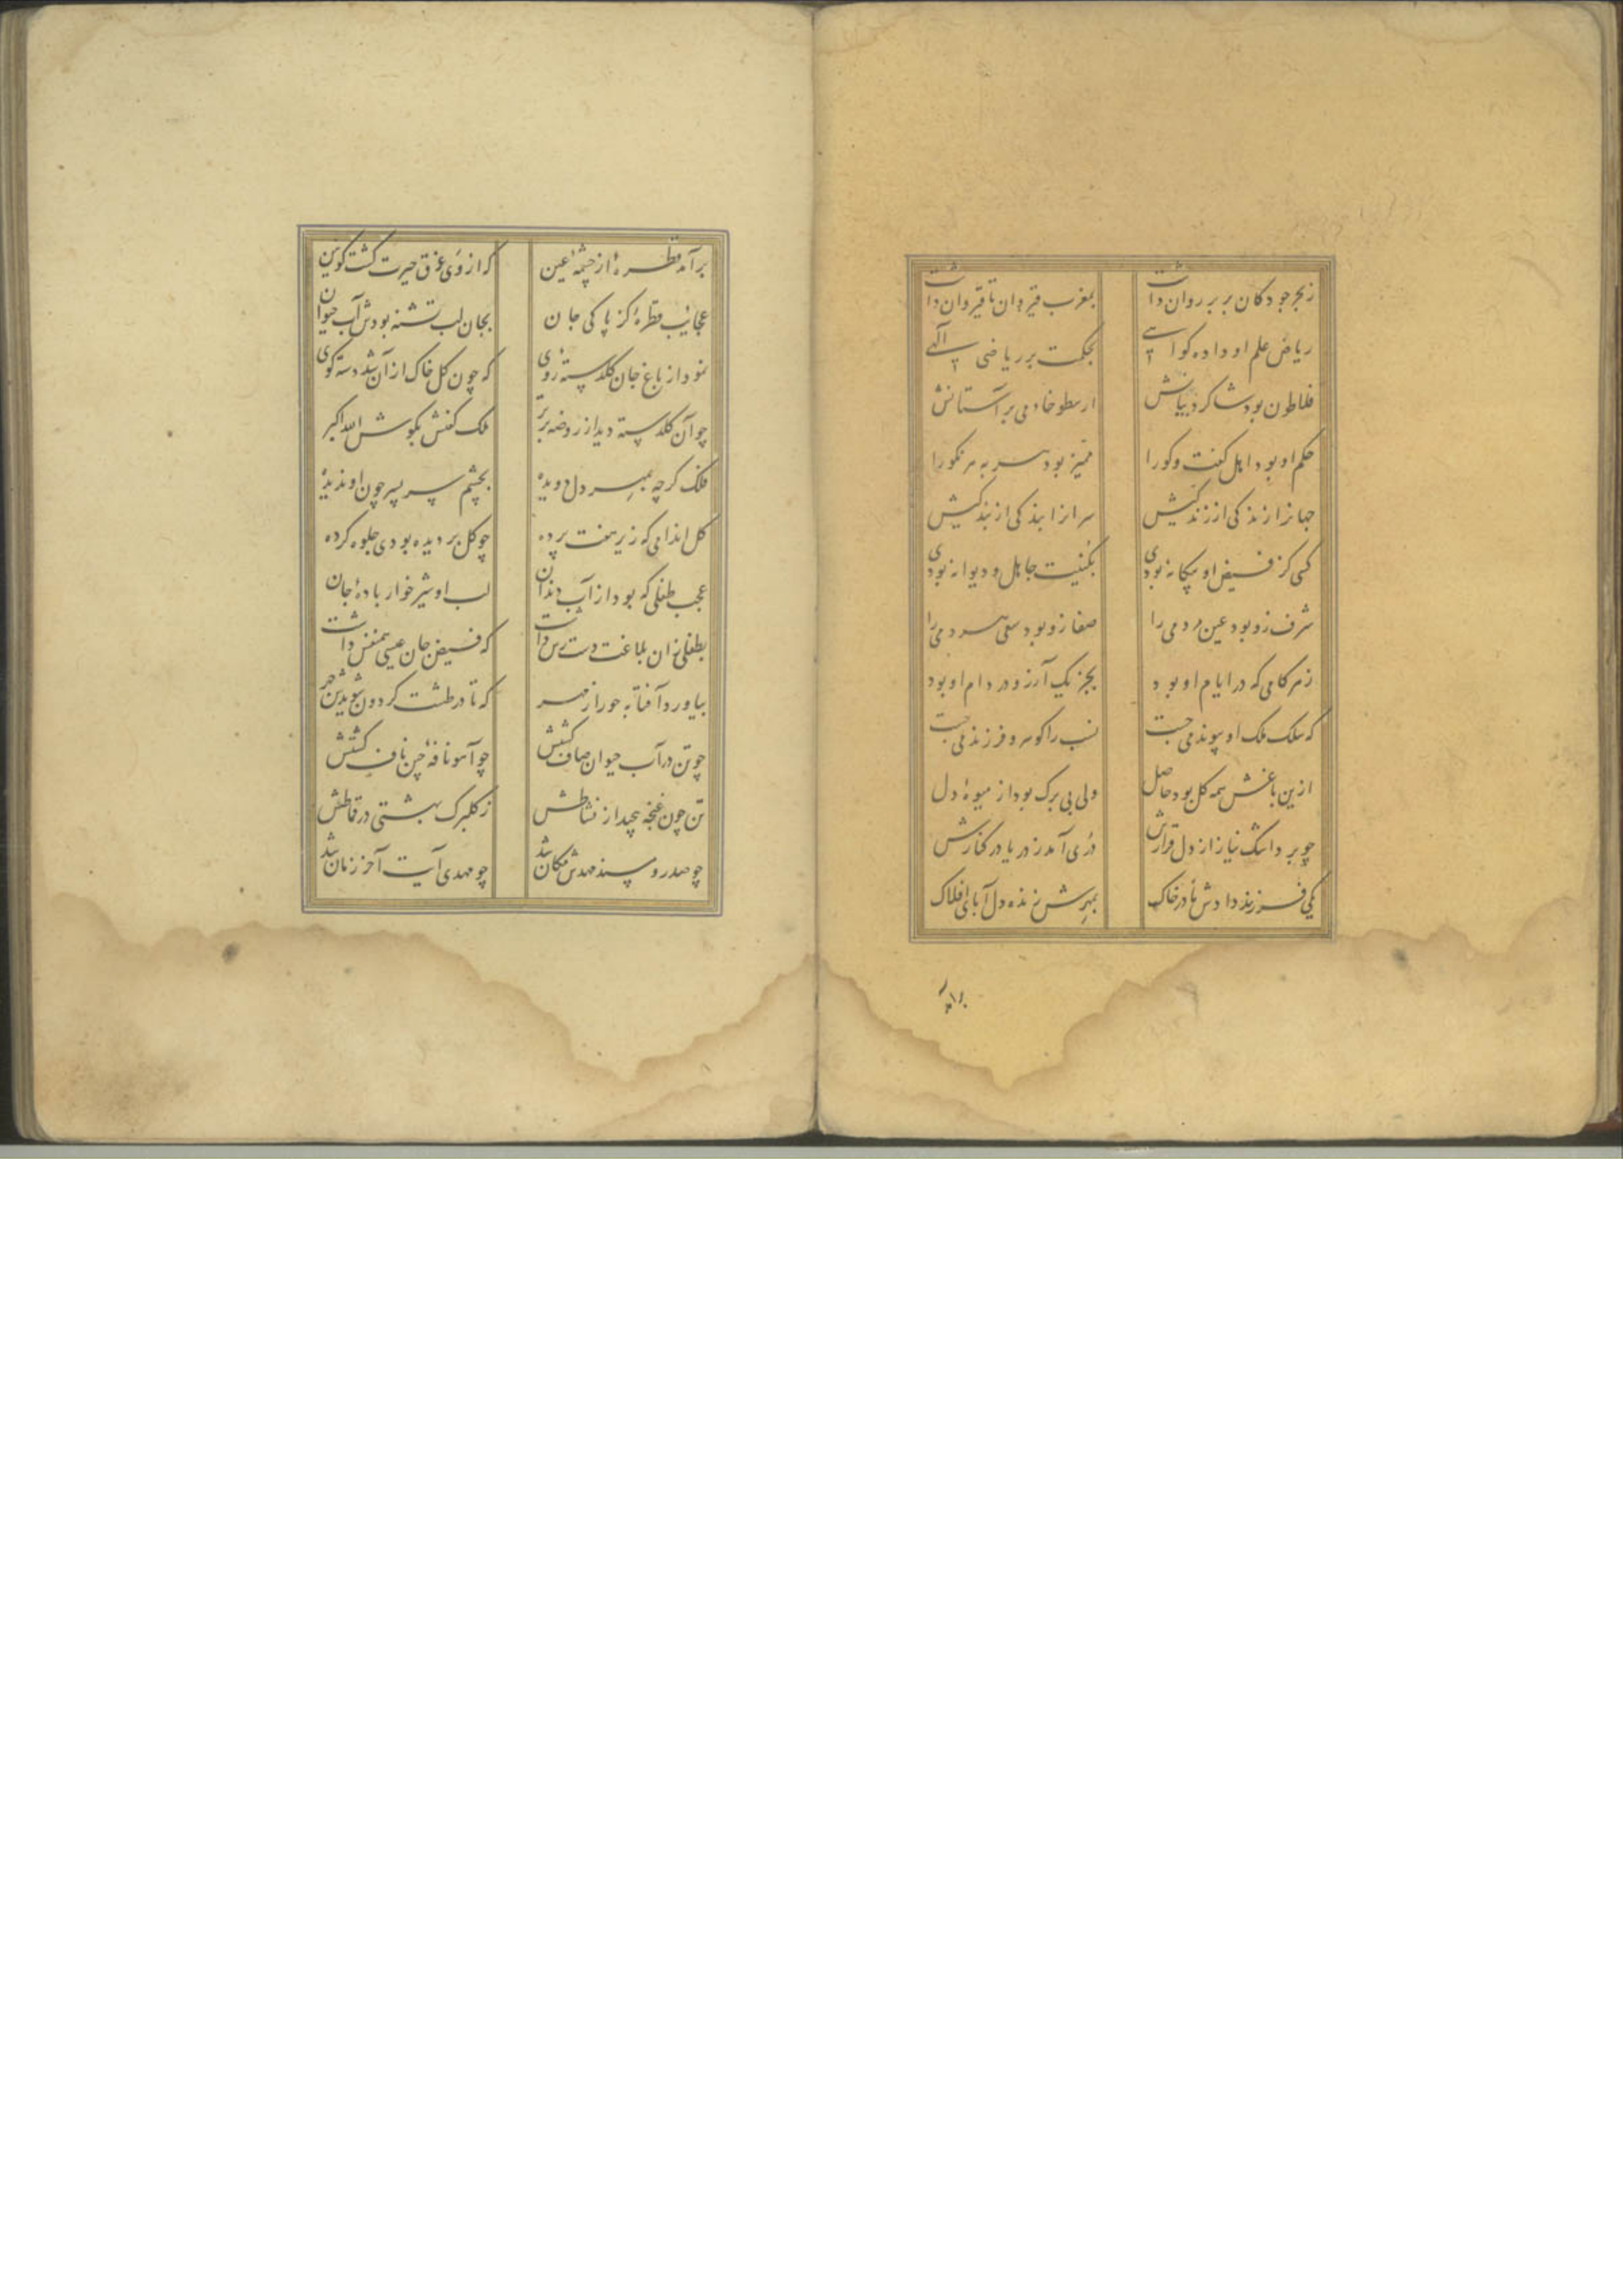 ز بحر جود کان بر بر روان داشت بمغرب قیروان تا قیروان داشت
ریاض علم او داده کواهی بحکمت بر ریاضی آلهی
فلاطون بود شاکرد بیانش ارسطو خادمی بر آستانش
حکم او بود اهل کفت وکو را ممیز بود سر به مر نکو را
جهانرا زندکی از زندکیش سرانرا بندکی از بندکیش
کسی کز فیض او بیکانه بودی بکنیت جاهل و دیوانه بودی
شرف زو بود عین مردمی را صفا زو بود سعی مردمی را
زهر کامی که در ایام او بود بجز یک آرزو در دام او بود
که سلک ملک او پیوند می جست نسب را کوهر و فرزند می جست
ازین باغش همه کل بود حاصل ولی بی برک بود از میوهٔ دل
چو بر داشت نیاز از دل قرارش دری آمد ز دریا در کنارش
یکی فرزند دادش نادر خاک بمهرش زنده دل آبای افلاک
برآمد
برآمد قطرهٔ از چشمهٔ عین که از وی غرق حیرت کشت کونین
عجائب قطرهٔ کز پاکی جان بجان لب تشنه بودش آب حیوان
نمود از باغ جان کلدسته روی که چون کل خاک ازآن شد دسته کوی
چو آن کلدسته دید از روضه برتر ملک کفتش بکوش الله اکبر
فلک کرچه بمهر دل دویده بچشم سر پسر چون او ندیده
کل اندامی که زیر هفت پرده چو کل بر دیده بودی جلوه کرده
عجب طفلی که بود از آب دندان لب او شیر خوار بادهٔ جان
بطفلی زان بلاغت دست رس داشت که فیض جان عیسی همنفس داشت
بیاورد آفتابه حور از مهر که تا در طشت کردون شویدش چهر
چو تن در آب حیوان صاف کشتش چو آهو نافهٔ چین ناف کشتش
تن چون غنچه پیچید از نشاطش ز کلبرک بهشتی در قماطش
چو صدر و سند مهدش مکان شد چو مهدی آیت آخر زمان شد